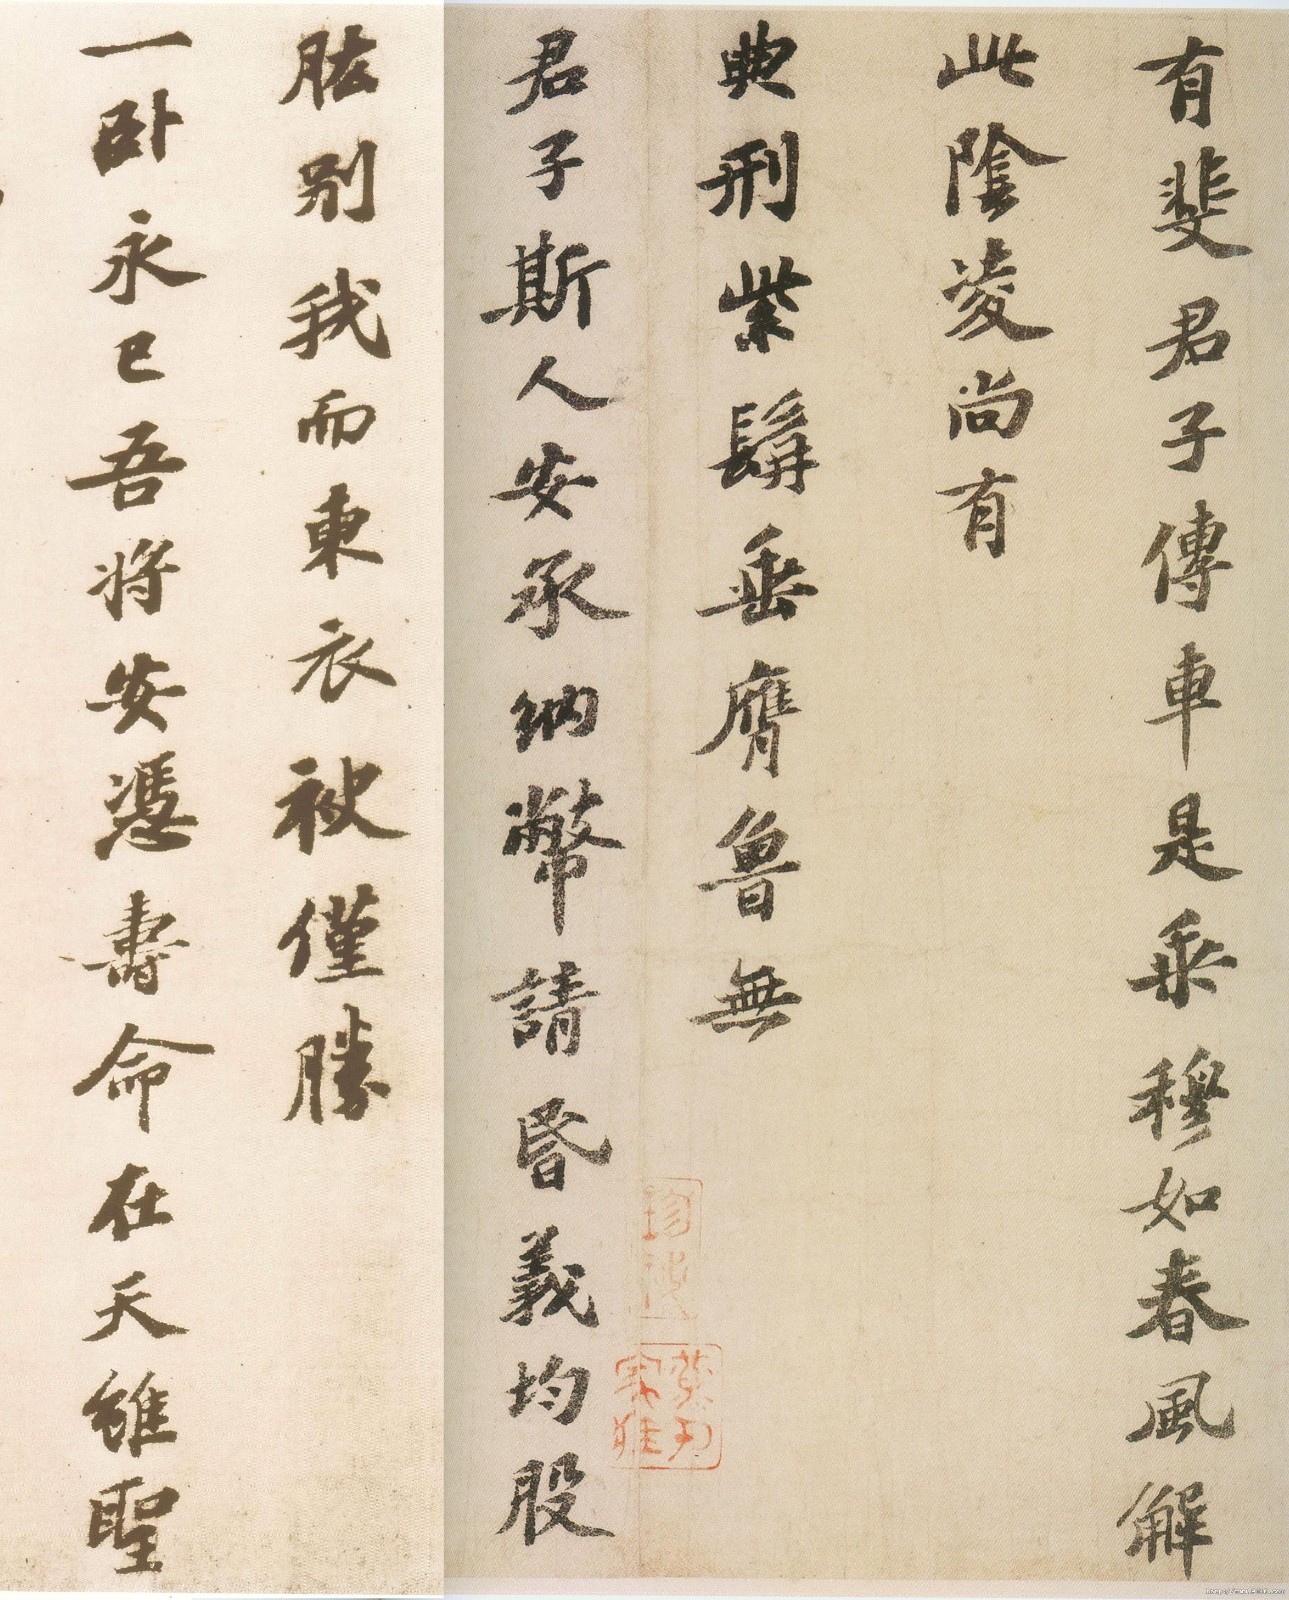 有斐君子傳車是乘穆如春風解
此陰凌尚有
典刑紫髯垂膺魯無
君子斯人安承納幣請昏義均股
肱別我而東衣被僅勝
一臥永已吾將安憑壽命在天雖聖